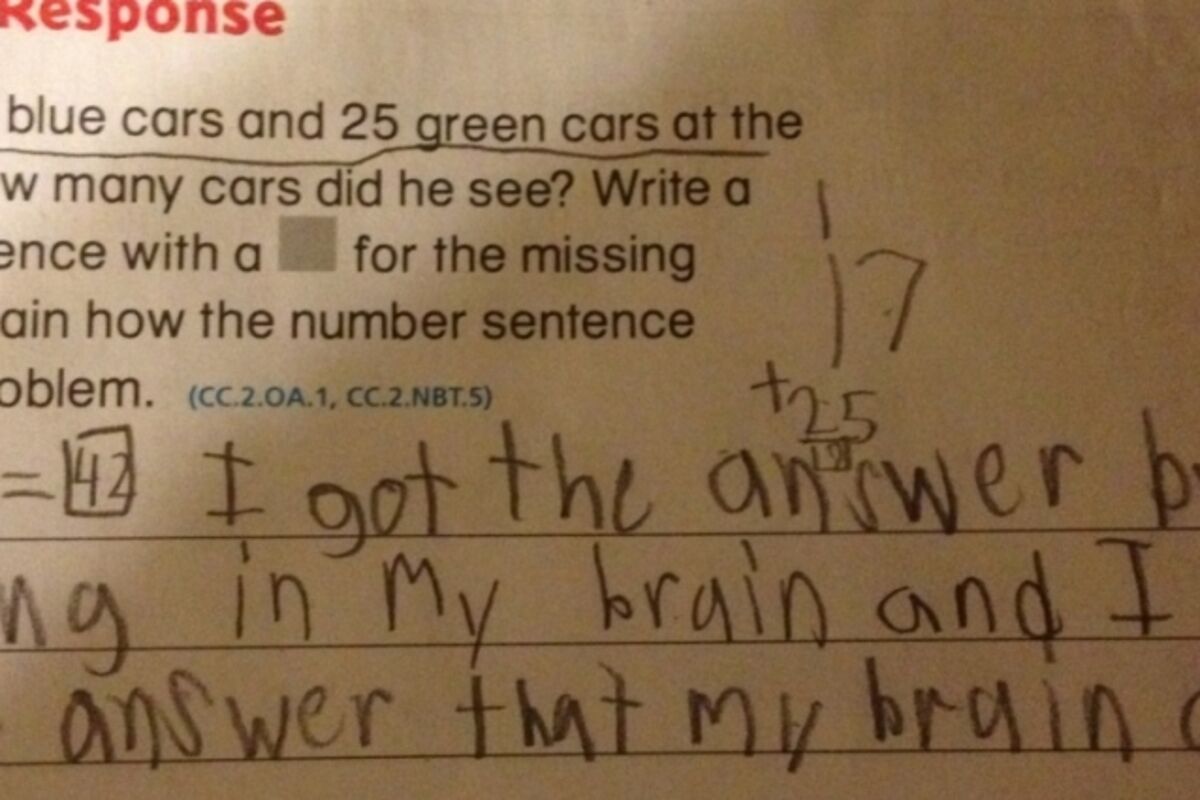 Response
blue cars and 25 green cars at the
w many cars did he see? Write a
ence with a for the missing
ain how the number sentence
oblem. (CC.2.OA.1, CC.2.NBT.5)
1
17
+25
= 42 I got the answer b
ng in my brain and I
answer that my brain